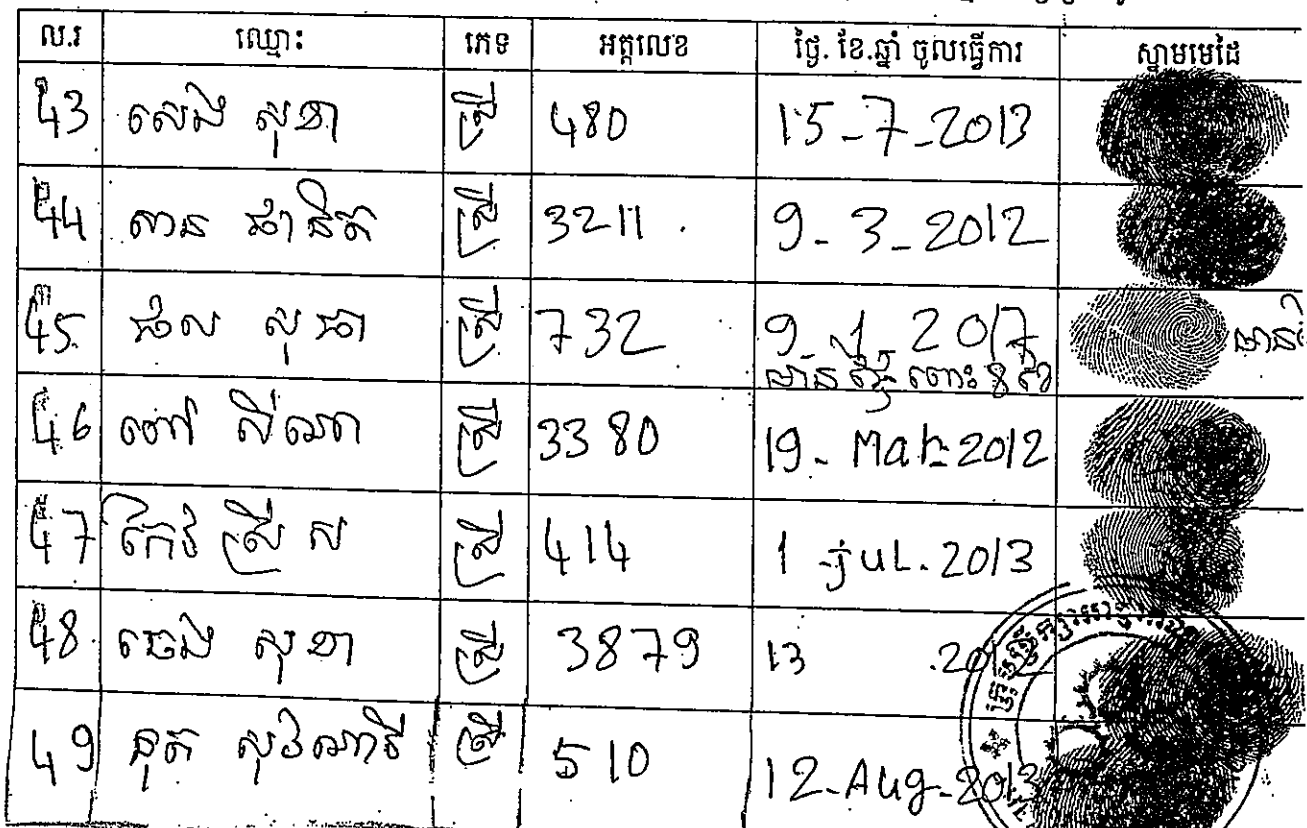 ល.រ ឈ្មោះ ភេទ អត្តលេខ ថ្ងៃ. ខែ.ឆ្នាំ ចូលធ្វើការ ស្នាមមេដៃ
43 សេង សុខា ស្រី 480 15-7-2013
44 តាន ផានិត ស្រី 3211 9-3-2012
45 ផល សុផា ស្រី 732 9-1-2017
មាន ពោះ
46 ពៅ ស៊ីណា ស្រី 3380 19-Mar-2012
47 កែវ ស្រី ស ស្រី 414 1-jul.2013
48 ចេង សុខា ស្រី 3879 13
49 នុត សុវណ្ណារី ស្រី 510 12-Aug-2013